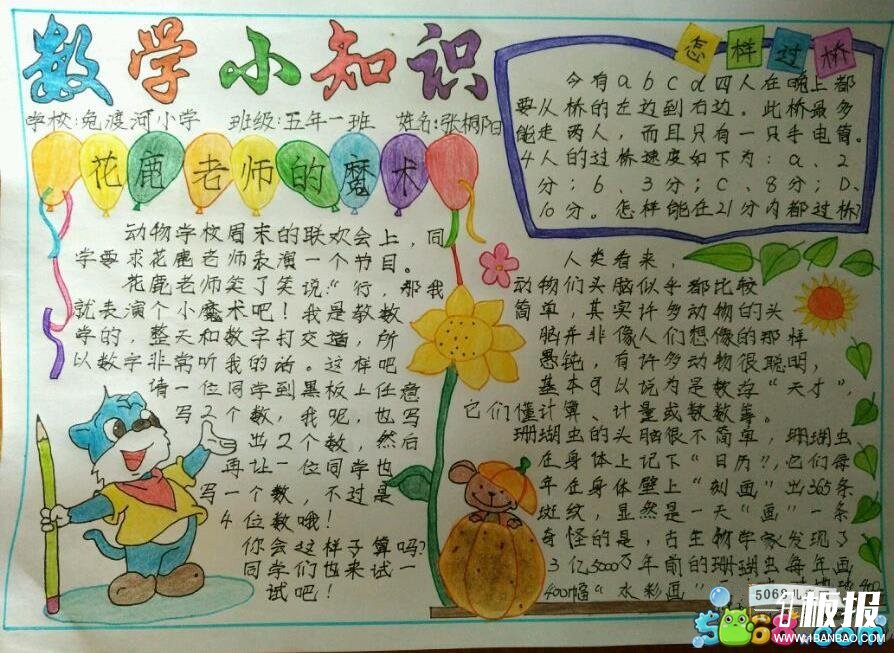 数学小知识
学校:兔渡河小学 班级:五年一班 姓名:张桐阳
花鹿老师的魔术
动物学校周末的联欢会上,同
学要求花鹿老师表演一个节目。
花鹿老师笑了笑说:"行,那我
就表演个小魔术吧!我是教数
学的,整天和数字打交道,所
以数字非常听我的话。这样吧
请一位同学到黑板上任意
写2个数,我呢,也写
出2个数,然后
再让一位同学也
写一个数,不过是
4位数哦!
你会这样子算吗?
同学们也来试一
试吧!
怎样过桥
今有a b c d四人在晚上都
要从桥的左边到右边。此桥最多
能走两人,而且只有一只手电筒。
4人的过桥速度如下为:a、2
分;b、3分;C、8分;D、
10分。怎样能在21分内都过桥?
人类看来,
动物们头脑似乎都比较
简单,其实许多动物的头
脑并非像人们想像的那样
愚钝,有许多动物很聪明,
基本可以说为是数学"天才",
它们懂计算、计量或数数等。
珊瑚虫的头脑很不简单,珊瑚虫
在身体上记下"日历",它们每
年在身体壁上"刻画"出365条
斑纹,显然是一天"画"一条
奇怪的是,古生物学家发现了
3亿5000万年前的珊瑚虫每年画
400幅"水彩画"
5068儿
板报
5068.com
WWW.1BANBAO.COM